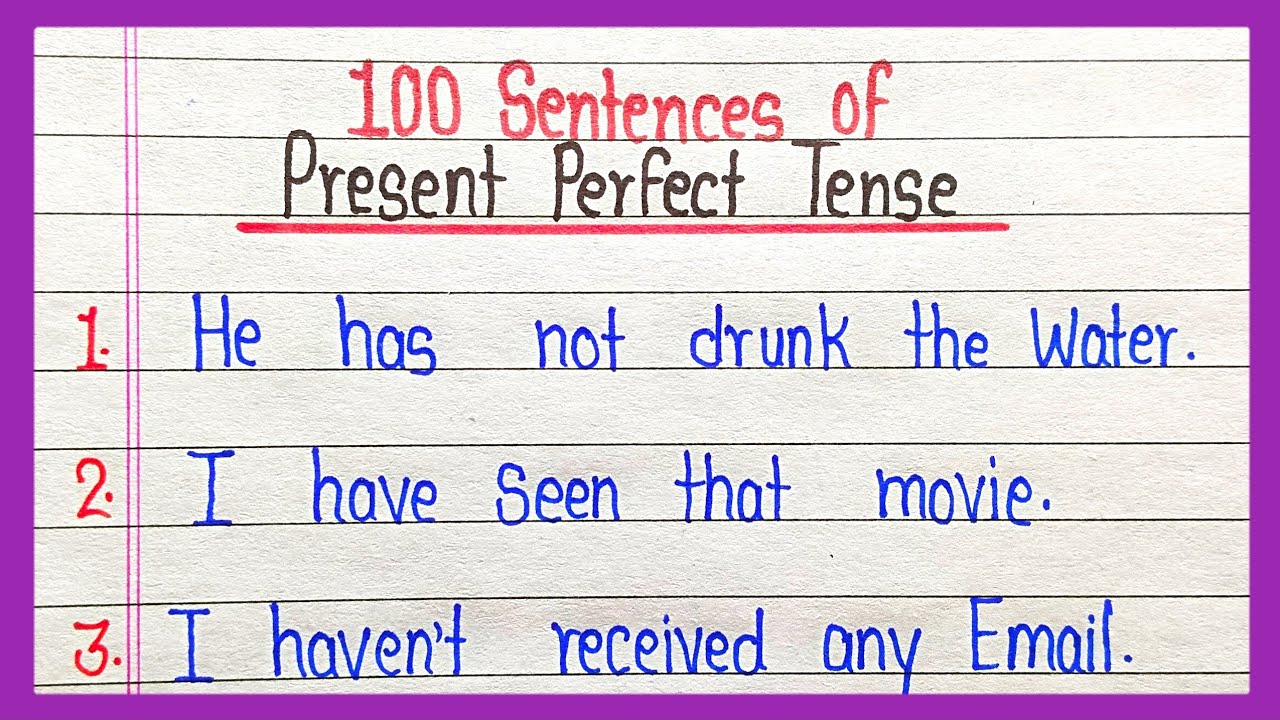 100 Sentences of
Present Perfect Tense
1. He has not drunk the Water.
2. I have Seen that movie.
3. I haven't received any Email.